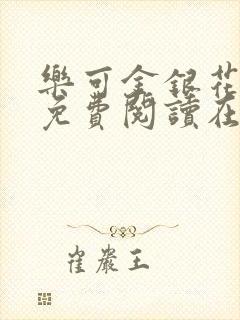 樂可金銀花
免費閱讀在
崔嚴王